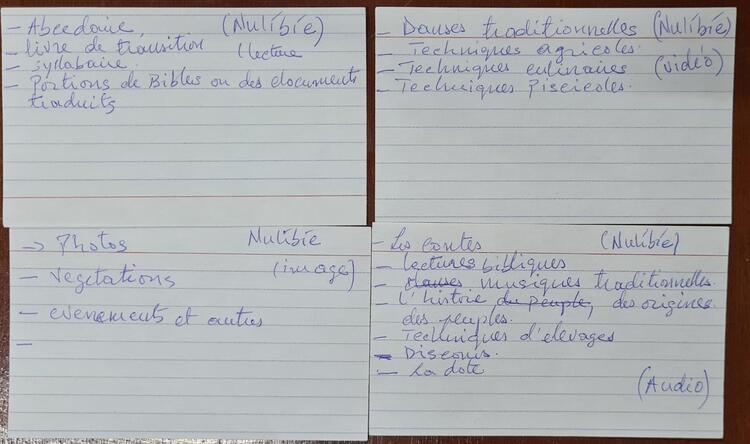 - Abecedaire, (Nulibie)
- livre de transition (lecture
- Syllabaire.
- Portions de Bibles ou des documents
traduits
- Danses traditionnelles (Nulibie)
- Techniques agricoles.
- Techniques culinaires (vidéo)
- Techniques Piscicoles.
-> Photos Nulibie
- vegetations (image)
- evenements et autres
-
- Les contes (Nulibie)
- lectures bibliques
- danses musiques traditionnelles.
- l'histoire du peuple, des origines
des peuples.
- Techniques d'elevages
- Discours.
- La dote
(Audio)